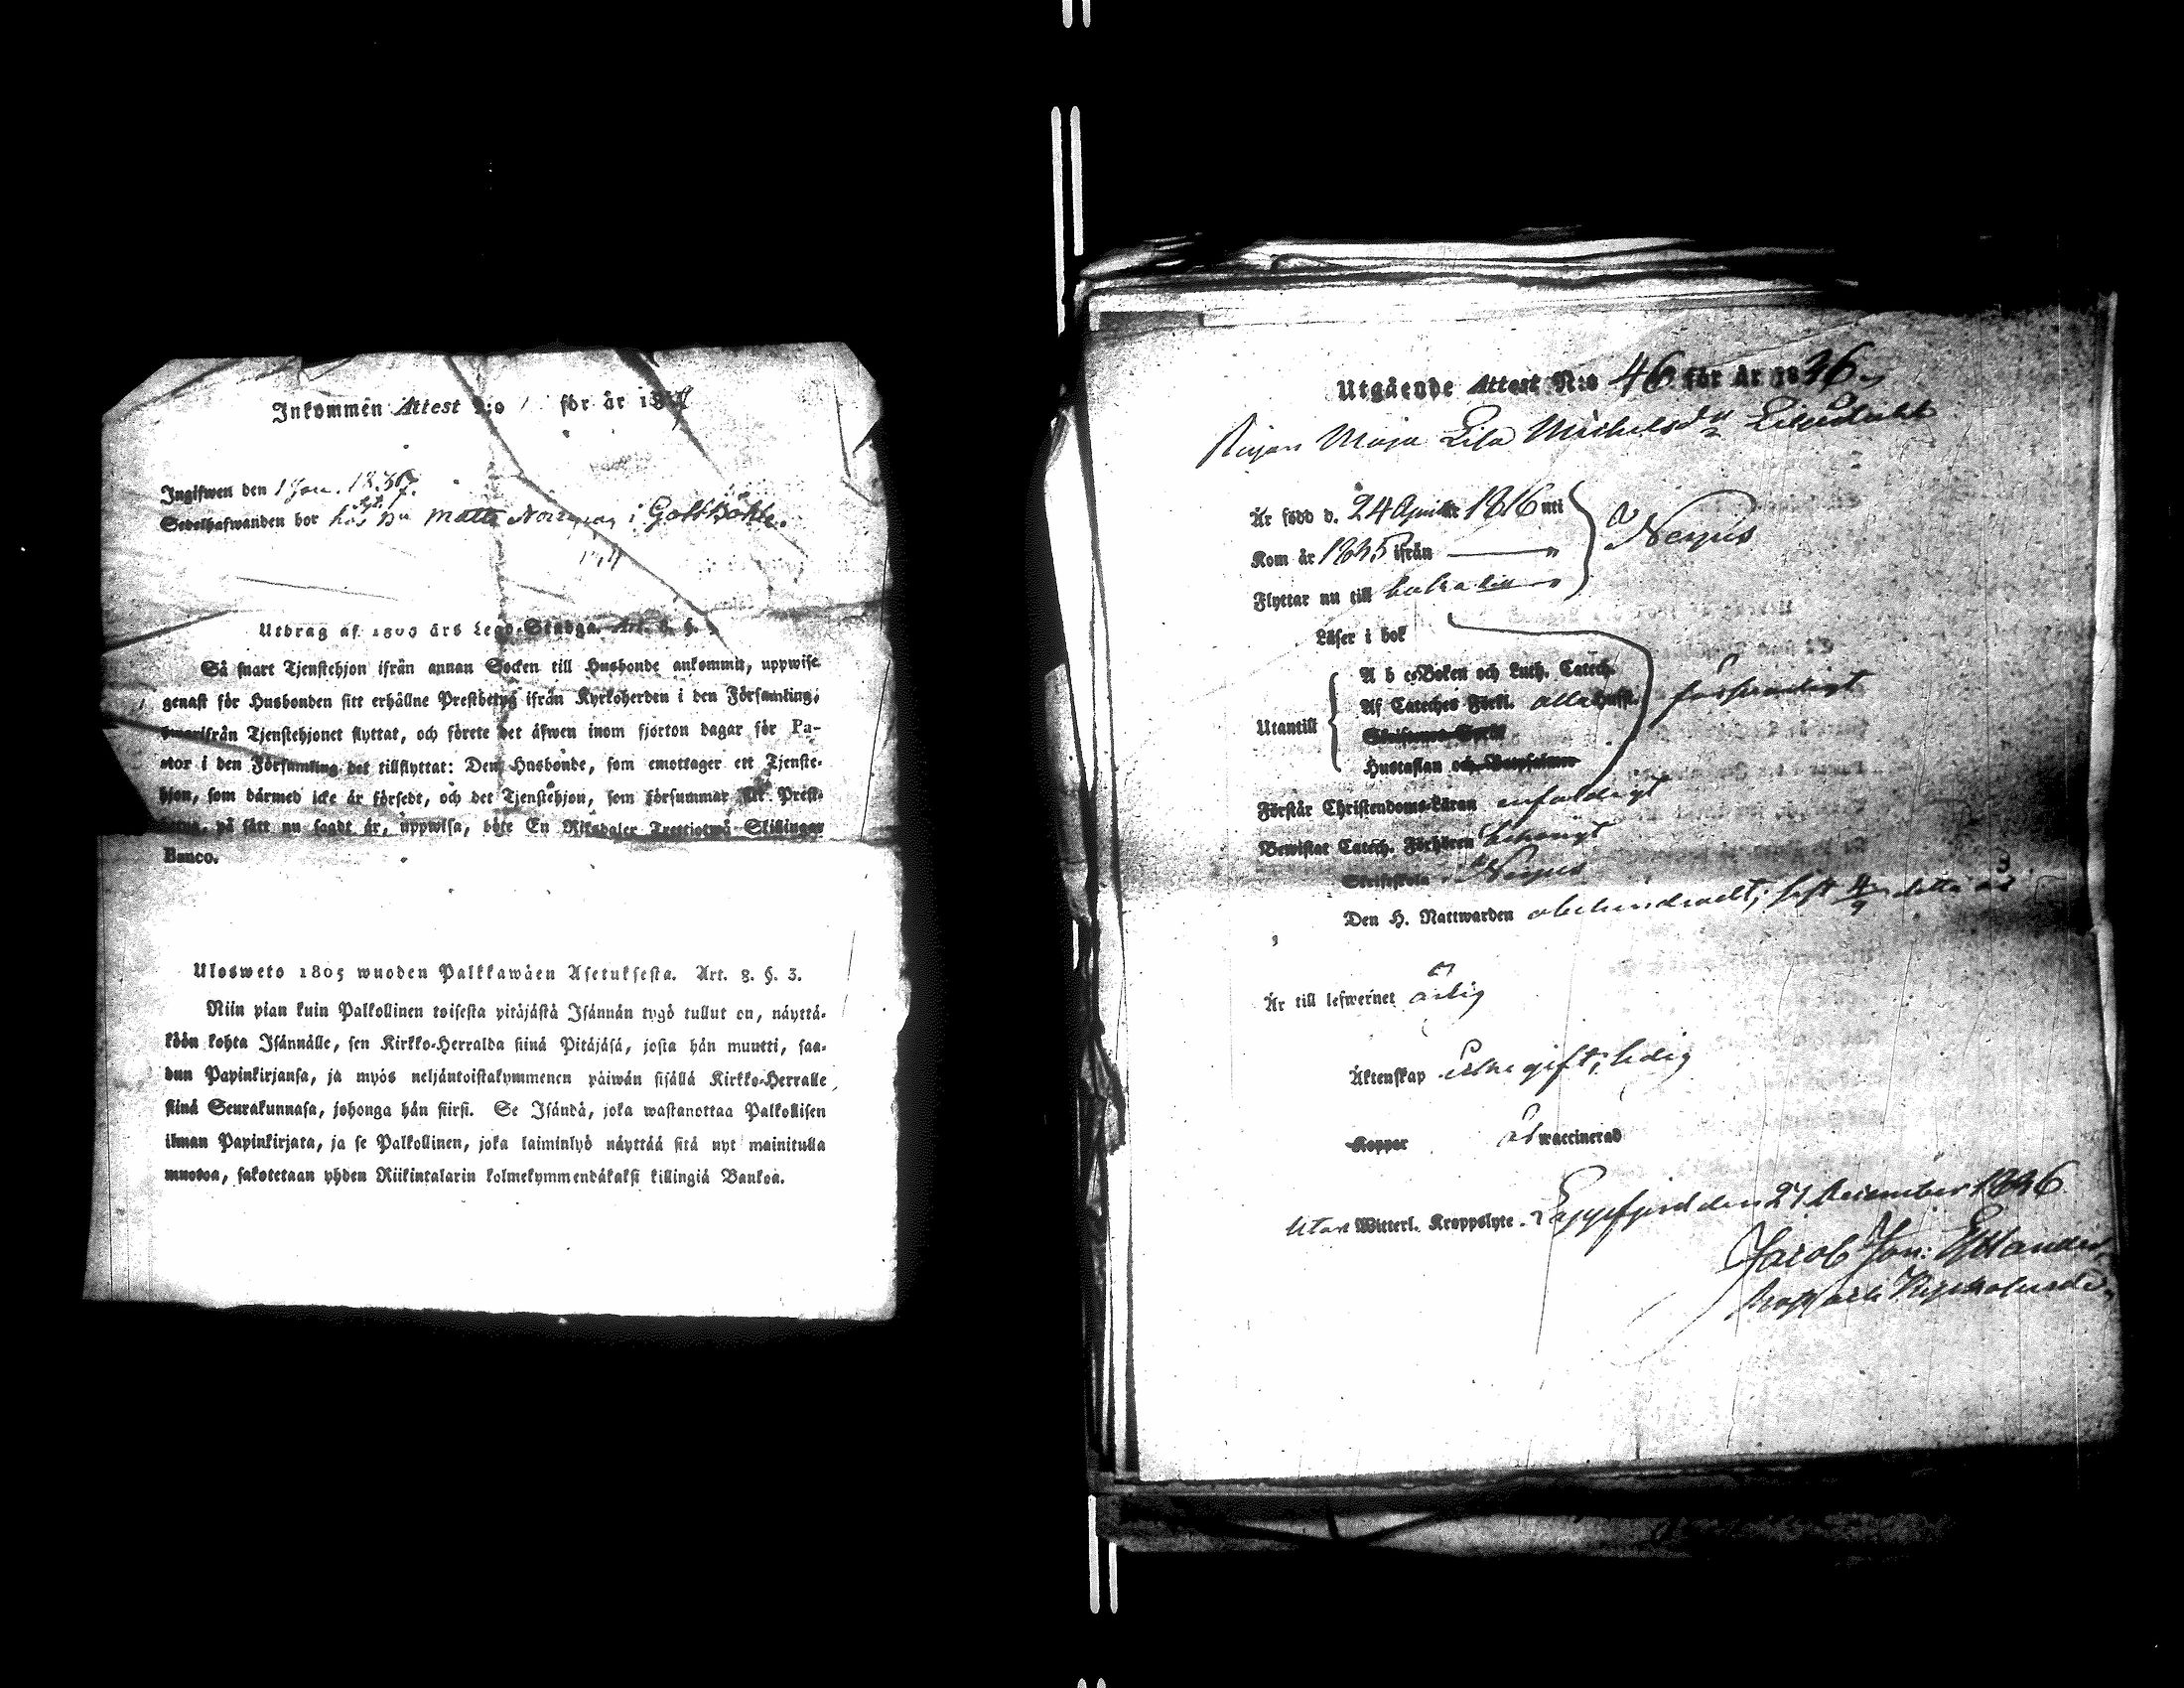 Inkommen Attest N:o 1 för år 18
Ingifwen den 1 Jan. 1837.
Sedelhafwanden bor hos Bn Matts i Gottböhle.
Utdrag af 1805 års Lego-Stadga. Art. 8. §.
Så snart Tjenstehjon ifrån annan Socken till Husbonde ankommit, uppwise
genast för Husbonden sitt erhållne Prestbetyg ifrån Kyrkoherden i den Församling,
hwarifrån Tjenstehjonet flyttat, och förete det äfwen inom fjorton dagar för Pa-
stor i den Församling det tillflyttat: Den Husbonde, som emottager ett Tjenste-
hjon, som därmed icke är försedt, och det Tjenstehjon, som försummar att Prest-
betyg, på sätt nu sagdt är, uppwisa, böte En Riksdaler Trettiotwå Skillingar
Banco.
Ulosweto 1805 wuoden Palkkawäen Asetuksesta. Art. 8. §. 3.
Niin pian kuin Palkollinen toisesta pitäjästä Isännän tygö tullut on, näyttä-
köön kohta Isännälle, sen Kirkko-Herralda siinä Pitäjäsä, josta hän muutti, saa-
dun Papinkirjansa, ja myös neljäntoistakymmenen päiwän sisällä Kirkko-Herralle
siinä Seurakunnasa, johonga hän siirsi. Se Isändä, joka wastanottaa Palkollisen
ilman Papinkirjata, ja se Palkollinen, joka laiminlyö näyttää sitä nyt mainitulla
muotoa, sakotetaan yhden Riikintalarin kolmekymmendäkaksi killingiä Bankoa.
Utgående Attest N:o 46 för År 1836.
Pigan Maja Lisa Michelsdr
Är född d. 24 April 1816 uti
Kom år 1835 ifrån
Närpes
Flyttar nu till
Läser i bok
A b c-Boken och Luth. Catech.
Af Cateches Förkl. alla Husst. försvarligt
Utantill
Hustaflan och Botpsalmer
Förstår Christendoms-Läran enfaldigt
Bewistat Catech. Förhören
Skriftskola i Närpes
Den H. Nattwarden obehindradt, sist 4/9 detta år
Är till lefwernet ärlig
Äktenskap icke gift, ledig
Koppor är waccinerad
Utan Witterl. Kroppslyte. Lappfjerd den 27 December 1836.
Jacob Jon: